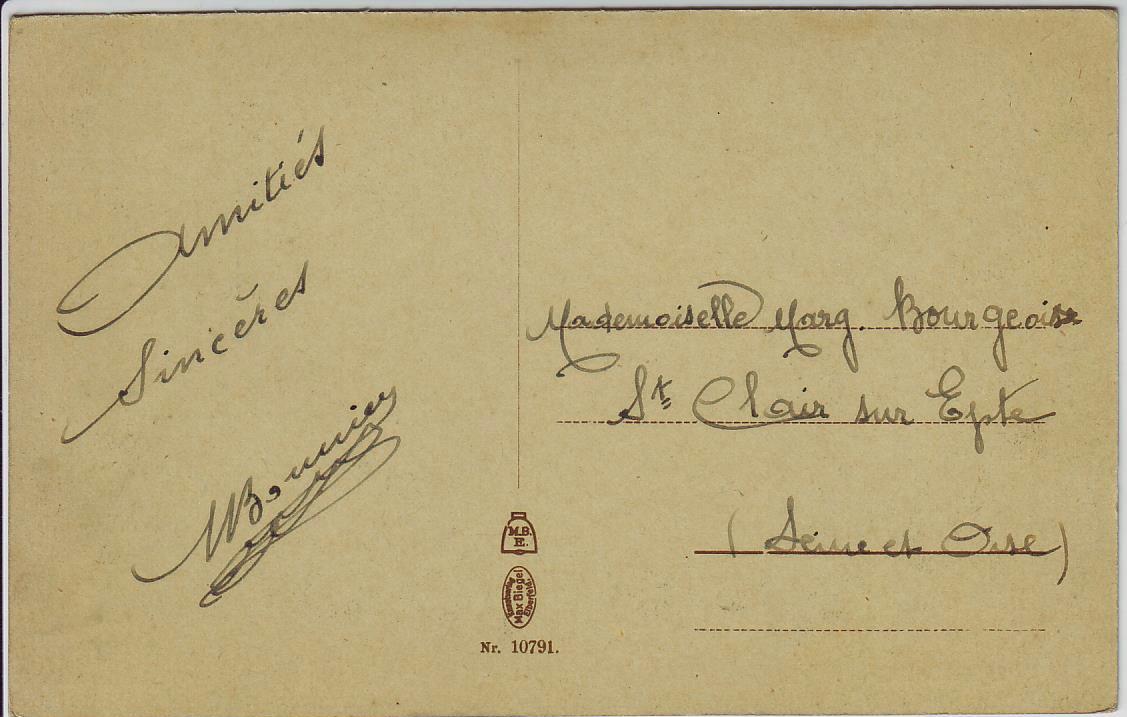 Amitiés
Sincères
MBonnier
Mademoiselle Marg. Bourgeoise
St Clair sur Epte
(Seine et Oise)
M.B.
E.
Kunstverlag
Max Biegel
Elberfeld.
Nr. 10791.